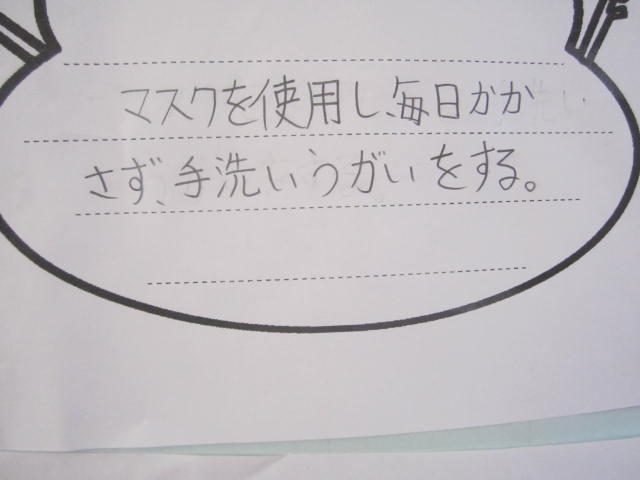 マスクを使用し、毎日かか
さず、手洗いうがいをする。